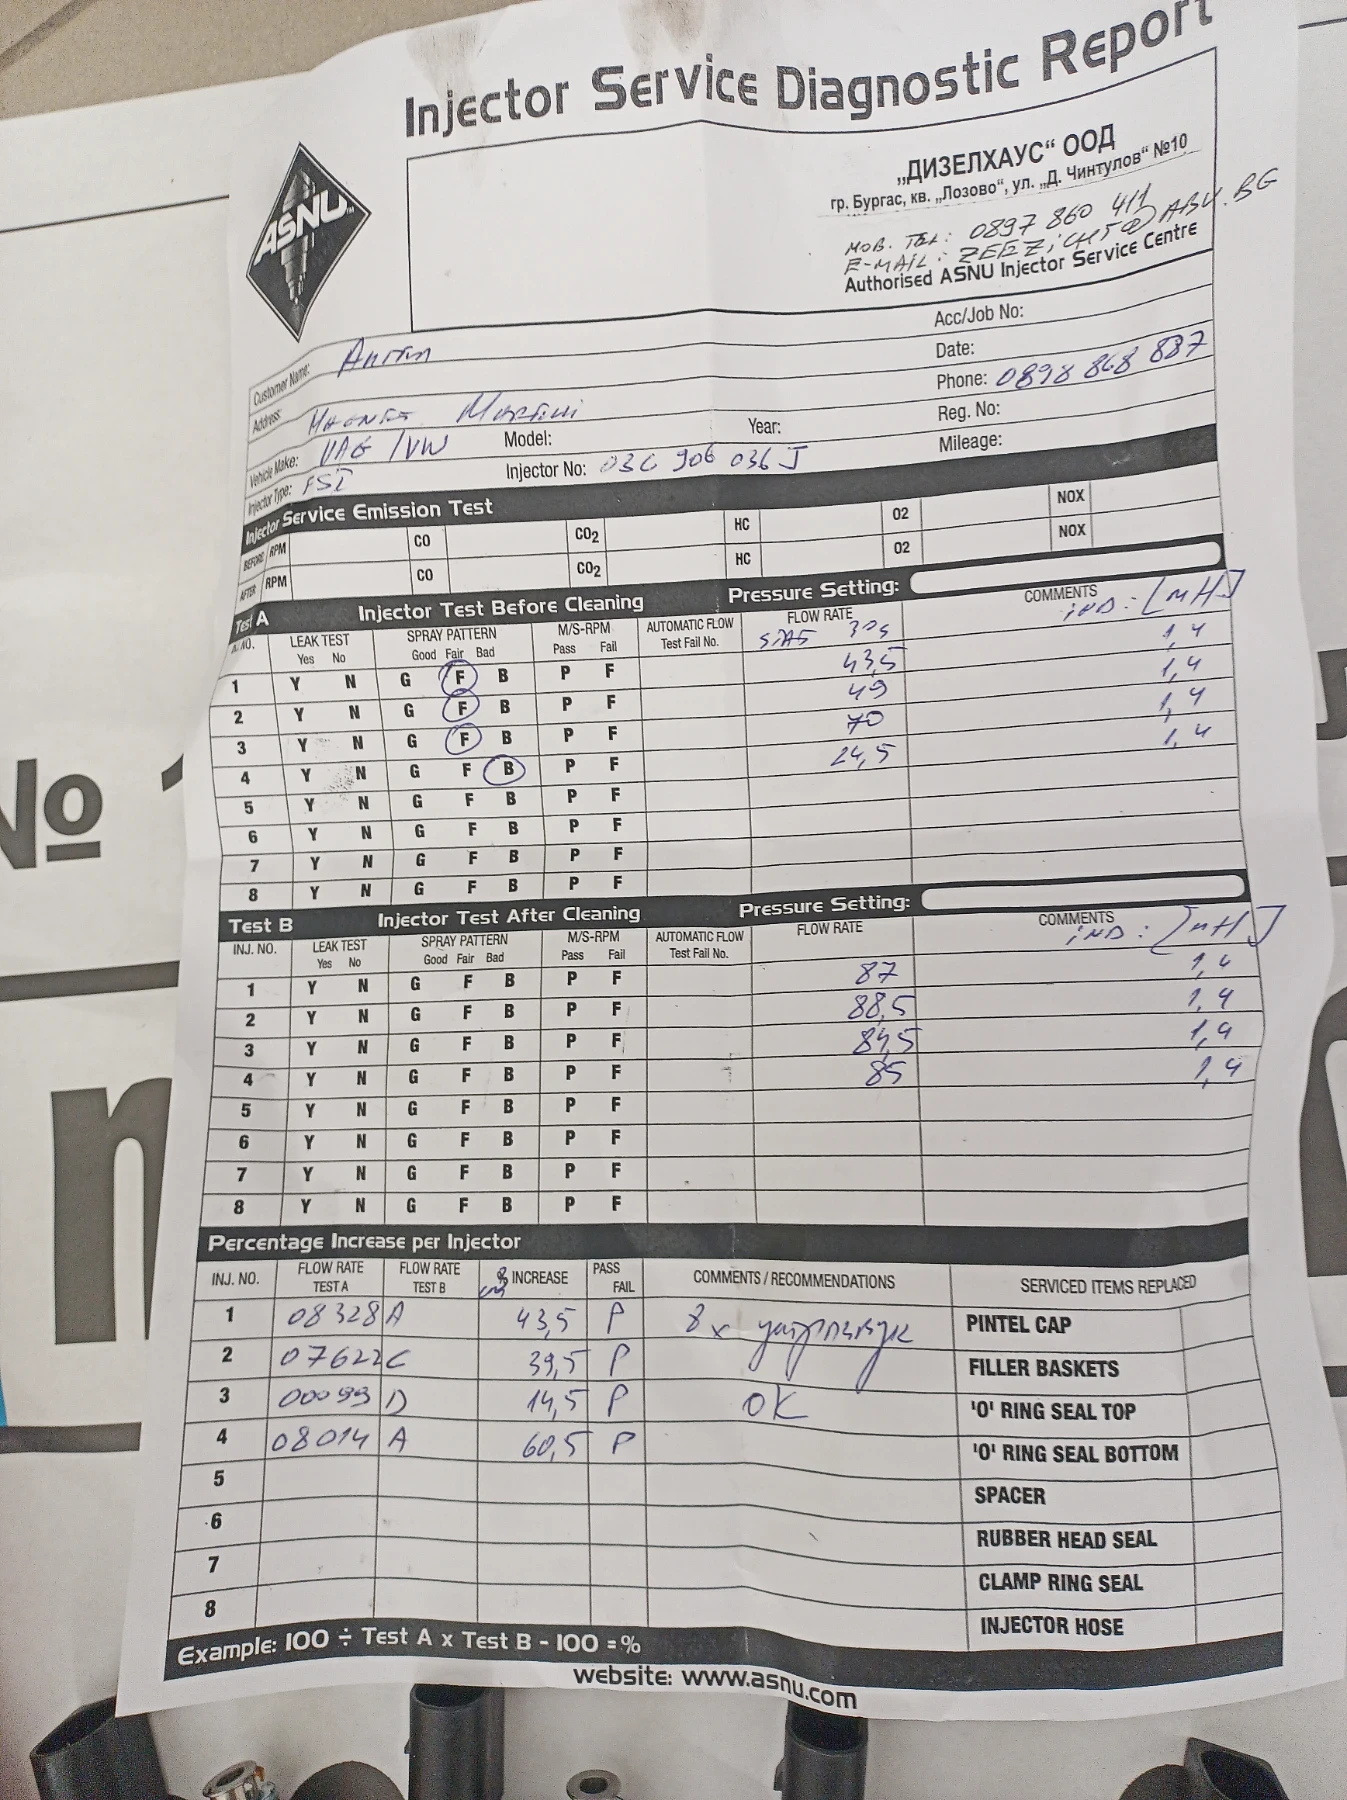 Injector Service Diagnostic Report
ASNU
„ДИЗЕЛХАУС“ ООД
гр. Бургас, кв. „Лозово“, ул. „Д. Чинтулов“ №10
МОВ. TEL: 0897 860 411
E-MAIL: @ABV.BG
Authorised ASNU Injector Service Centre
Customer Name:
Acc/Job No:
Address:
Date:
Phone: 0898 868 887
Vehicle Make: VAG/VW Model: Year: Reg. No:
Injector Type: FSI Injector No: 03C 906 036 J Mileage:
Injector Service Emission Test
BEFORE RPM CO CO2 HC O2 NOX
AFTER RPM CO CO2 HC O2 NOX
Test A Injector Test Before Cleaning Pressure Setting:
INJ NO. LEAK TEST SPRAY PATTERN M/S-RPM AUTOMATIC FLOW FLOW RATE COMMENTS
Yes No Good Fair Bad Pass Fail Test Fail No. iND: [mH]
1 Y N G F B P F 43,5 1,4
2 Y N G F B P F 49 1,4
3 Y N G F B P F 70 1,4
4 Y N G F B P F 24,5 1,4
5 Y N G F B P F
6 Y N G F B P F
7 Y N G F B P F
8 Y N G F B P F
Test B Injector Test After Cleaning Pressure Setting:
INJ. NO. LEAK TEST SPRAY PATTERN M/S-RPM AUTOMATIC FLOW FLOW RATE COMMENTS
Yes No Good Fair Bad Pass Fail Test Fail No. iND: [mH]
1 Y N G F B P F 87 1,4
2 Y N G F B P F 88,5 1,4
3 Y N G F B P F 84,5 1,4
4 Y N G F B P F 85 1,4
5 Y N G F B P F
6 Y N G F B P F
7 Y N G F B P F
8 Y N G F B P F
Percentage Increase per Injector
INJ. NO. FLOW RATE TEST A FLOW RATE TEST B % INCREASE PASS FAIL COMMENTS / RECOMMENDATIONS SERVICED ITEMS REPLACED
1 08328 A 43,5 P 8x PINTEL CAP
2 07622 C 39,5 P FILLER BASKETS
3 00099 D 14,5 P OK 'O' RING SEAL TOP
4 08014 A 60,5 P 'O' RING SEAL BOTTOM
5 SPACER
6 RUBBER HEAD SEAL
7 CLAMP RING SEAL
8 INJECTOR HOSE
Example: 100 ÷ Test A x Test B - 100 = %
website: www.asnu.com
№